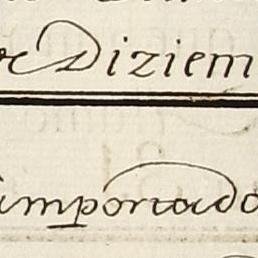 Diziem
importado